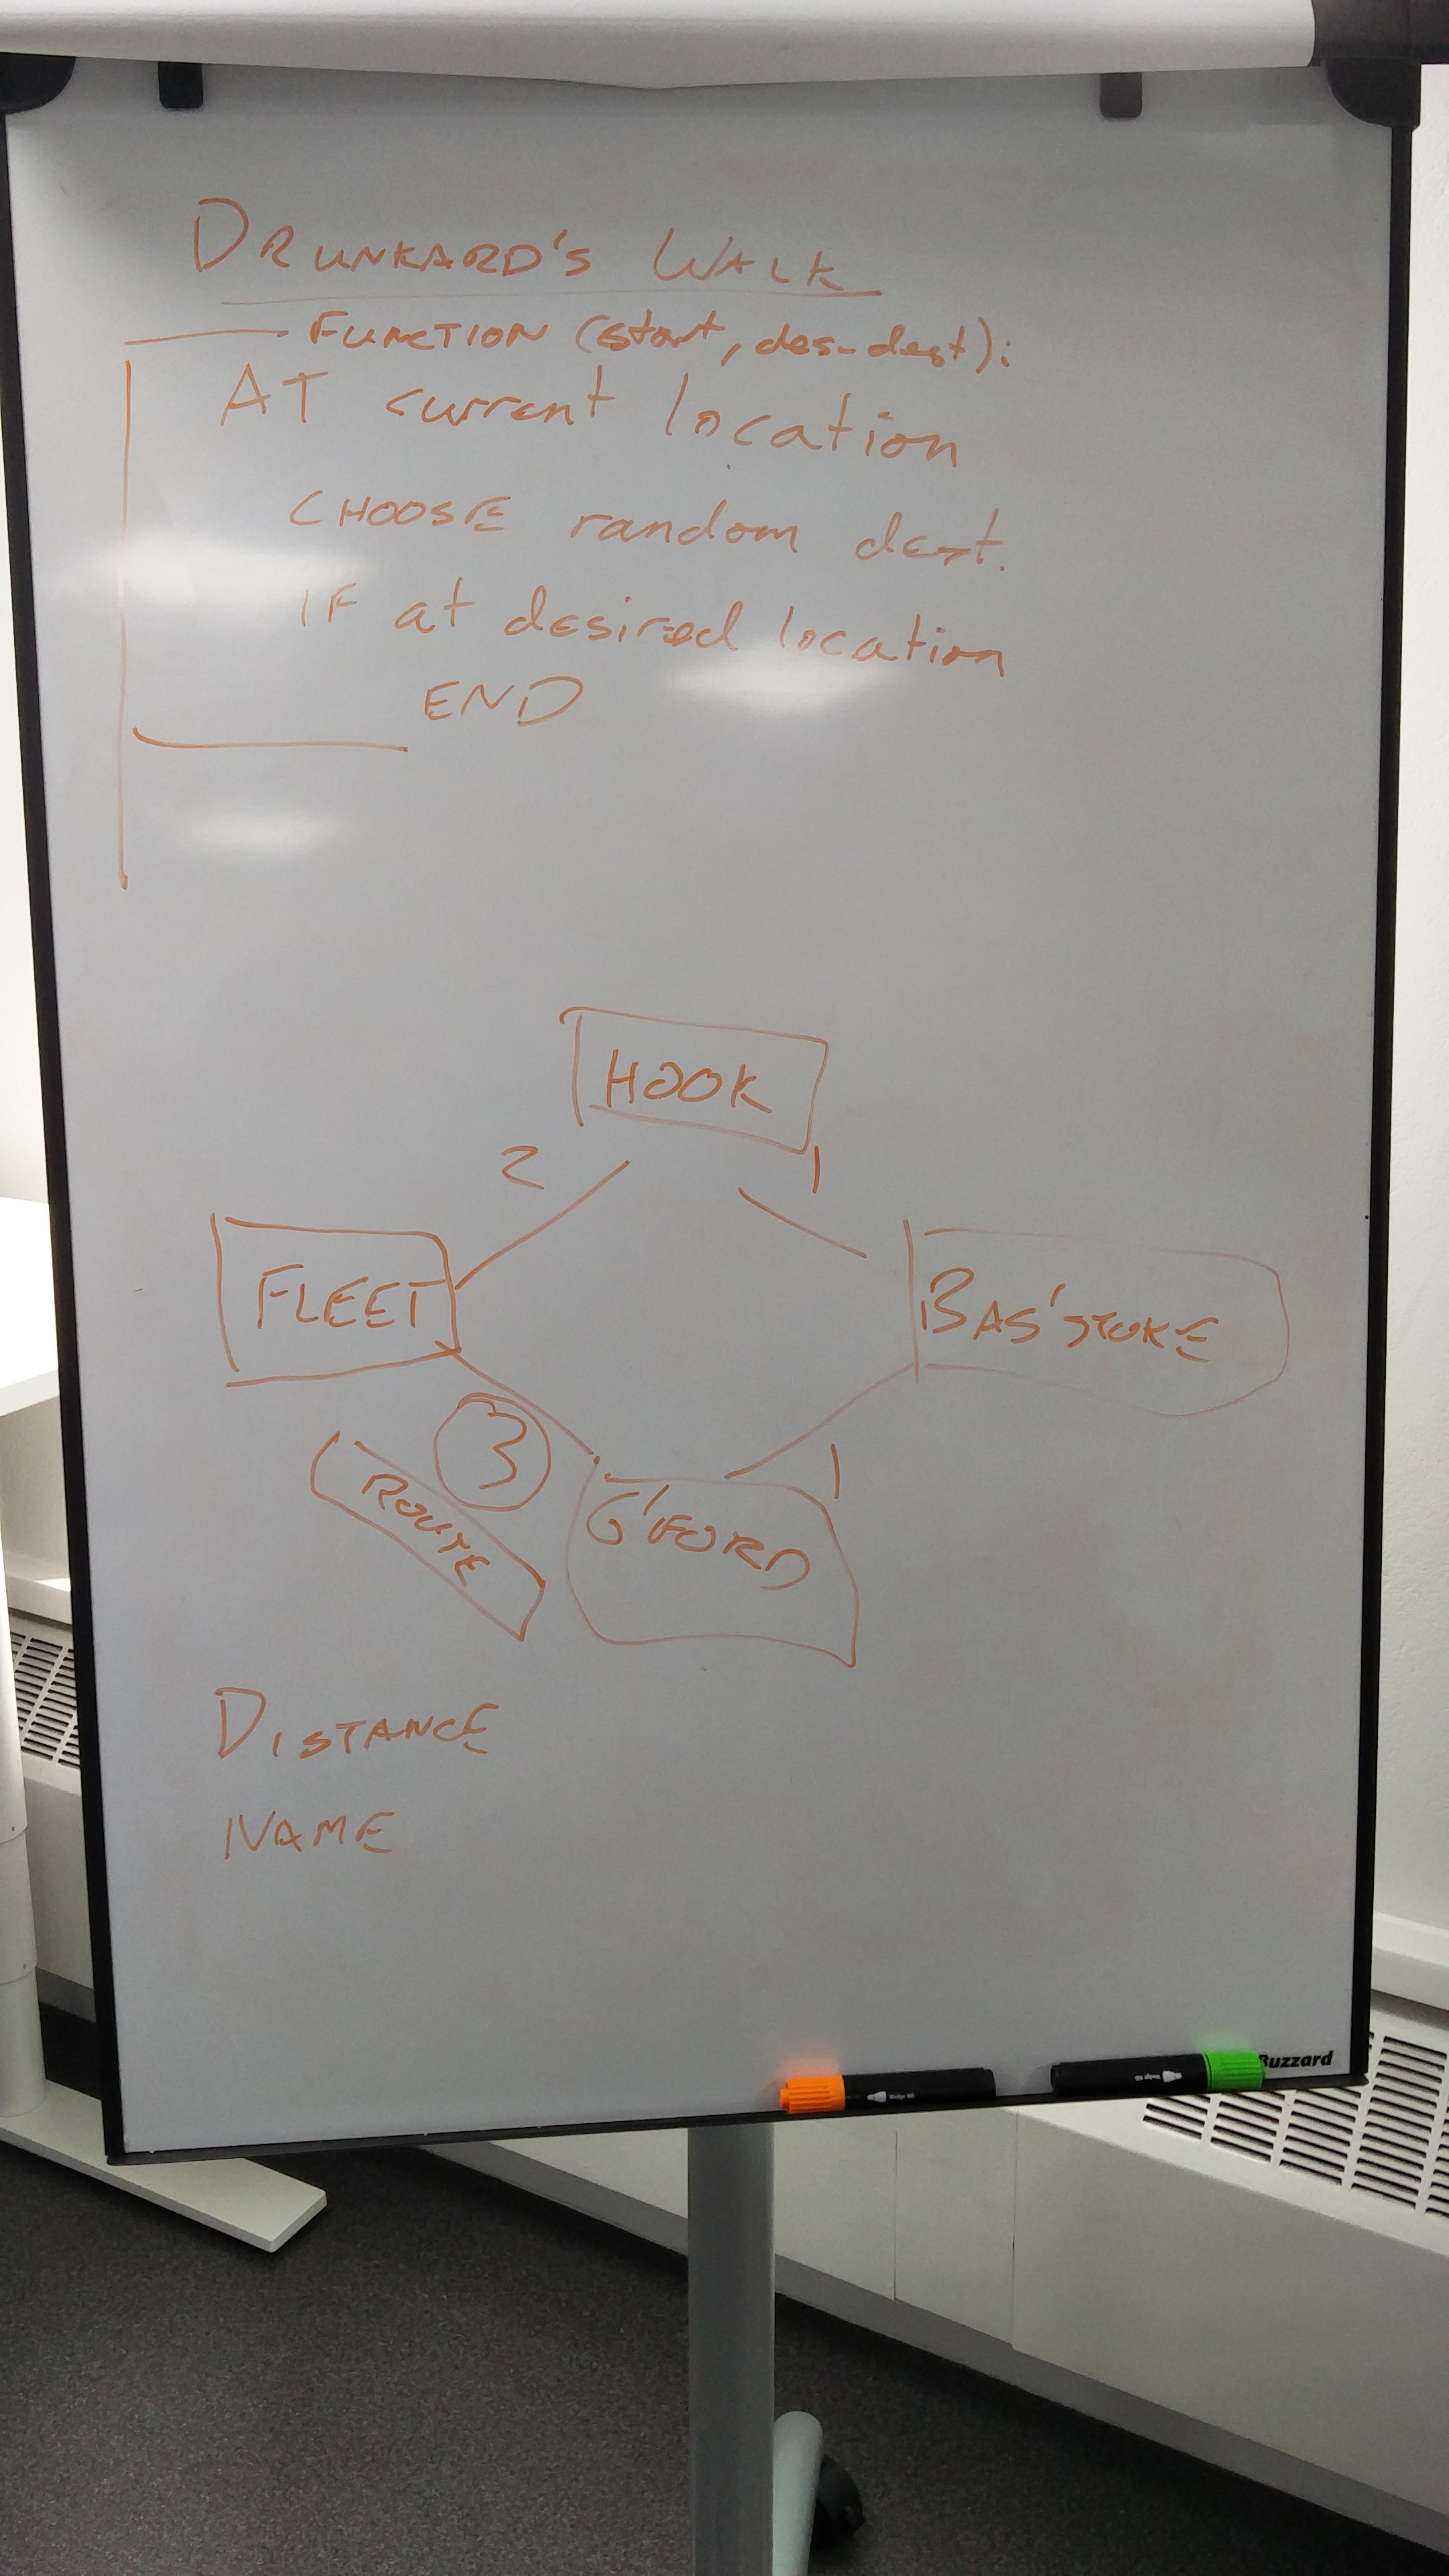 DRUNKARD'S WALK
FUNCTION (start, des-dest):
AT current location
CHOOSE random dest.
IF at desired location
END
HOOK
2
1
FLEET
BAS'STOKE
3
1
ROUTE
G'FORD
DISTANCE
NAME
Buzzard